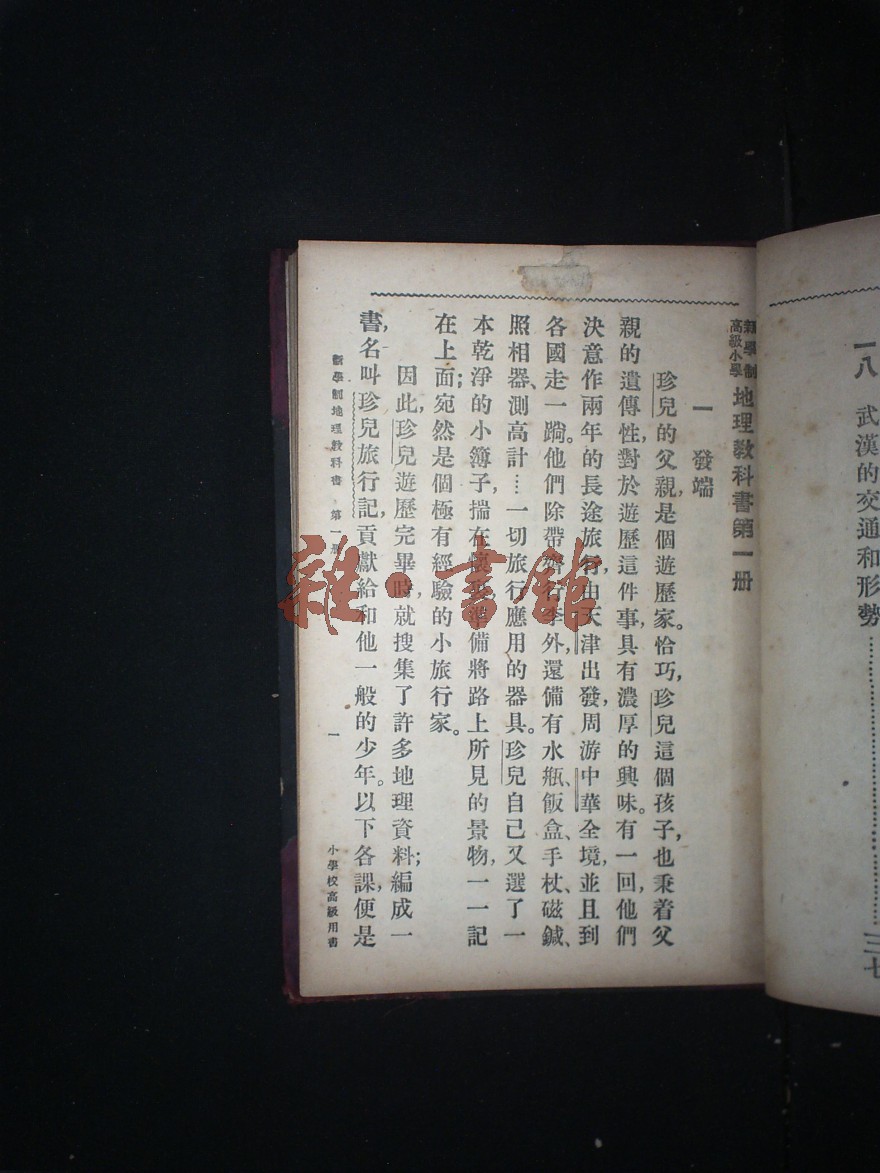 一八 武漢的交通和形勢……………三七
新學制
高級小學
地理教科書第一册
一 發端
珍兒的父親，是個遊歷家。恰巧，珍兒這個孩子，也秉着父
親的遺傳性，對於遊歷這件事，具有濃厚的興味。有一回，他們
決意作兩年的長途旅行，由天津出發，周游中華全境，並且到
各國走一蹚。他們除帶齊行李外，還備有水瓶、飯盒、手杖、磁鍼、
照相器、測高計…一切旅行應用的器具。珍兒自己又選了一
本乾淨的小簿子，揣在懷裏，準備將路上所見的景物，一一記
在上面；宛然是個極有經驗的小旅行家。
因此，珍兒遊歷完畢時，就搜集了許多地理資料；編成一
書，名叫珍兒旅行記，貢獻給和他一般的少年。以下各課，便是
新學制地理教科書 第一册 一 小學校高級用書
雜·書館